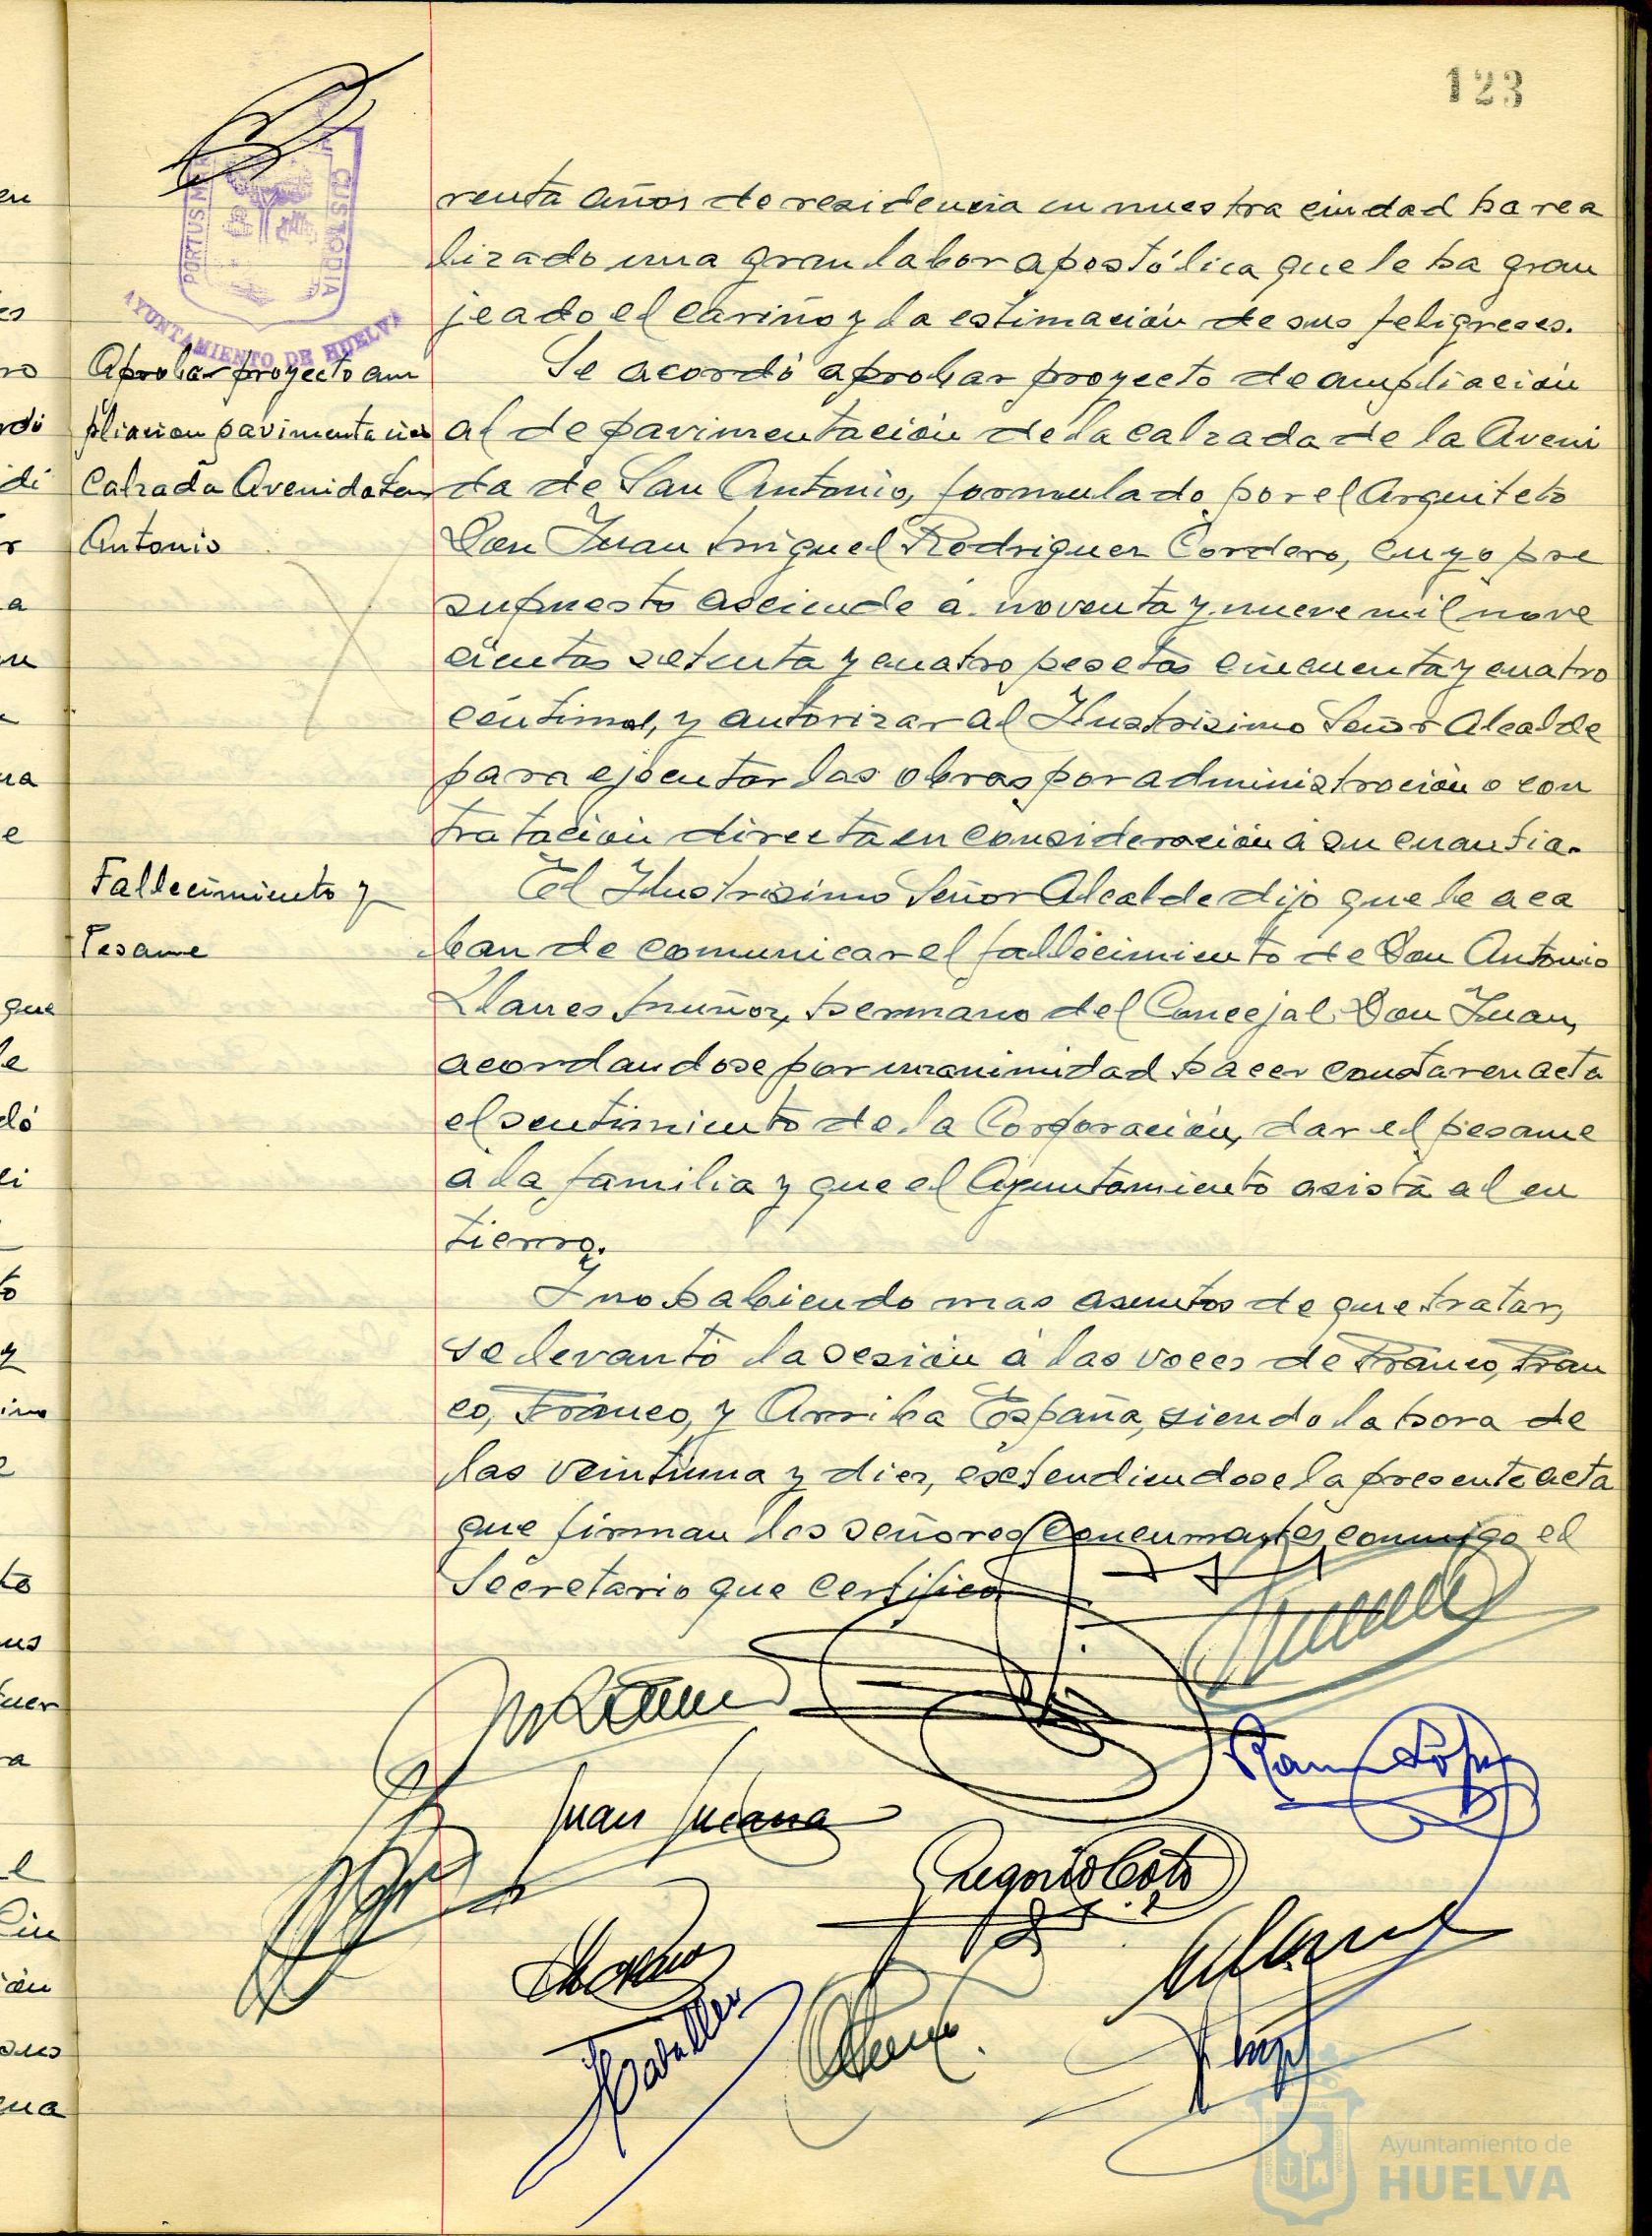 123
PORTUS MARIS
CUSTODIA
AYUNTAMIENTO DE HUELVA
renta años de residencia en nuestra ciudad ha rea
lizado una gran labor apostólica que le ha gran
jeado el cariño y la estimación de sus feligreses.
Aprobar proyecto am
pliacion pavimentación
Calzada Avenida San
Antonio
Se acordó aprobar proyecto de ampliación
al de pavimentación de la calzada de la Aveni
da de San Antonio, formulado por el Arquiteto
Don Juan Miguel Rodriguez Cordero, cuyo pre
supuesto asciende a noventa y nueve mil nove
cientas setenta y cuatro pesetas cincuenta y cuatro
céntimos, y autorizar al Ilustrisimo Señor Alcalde
para ejecutar las obras por administración o con
tratación directa en consideración a su cuantia.
Fallecimiento y
Pesame
El Ilustrisimo Señor Alcalde dijo que le aca
ban de comunicar el fallecimiento de Don Antonio
Llanes Muñoz, hermano del Concejal Don Juan,
acordandose por unanimidad hacer constar en acta
el sentimiento de la Corporación, dar el pesame
a la familia y que el Ayuntamiento asista al en
tierro.
Y no habiendo mas asuntos de que tratar,
se levantó la sesión a las voces de Franco, Fran
co, Franco, y Arriba España, siendo la hora de
las veintiuna y diez, extendiendose la presente acta
que firman los señores concurrentes conmigo el
Secretario que certifico
Juan
Gregorio Coto
Ayuntamiento de
HUELVA